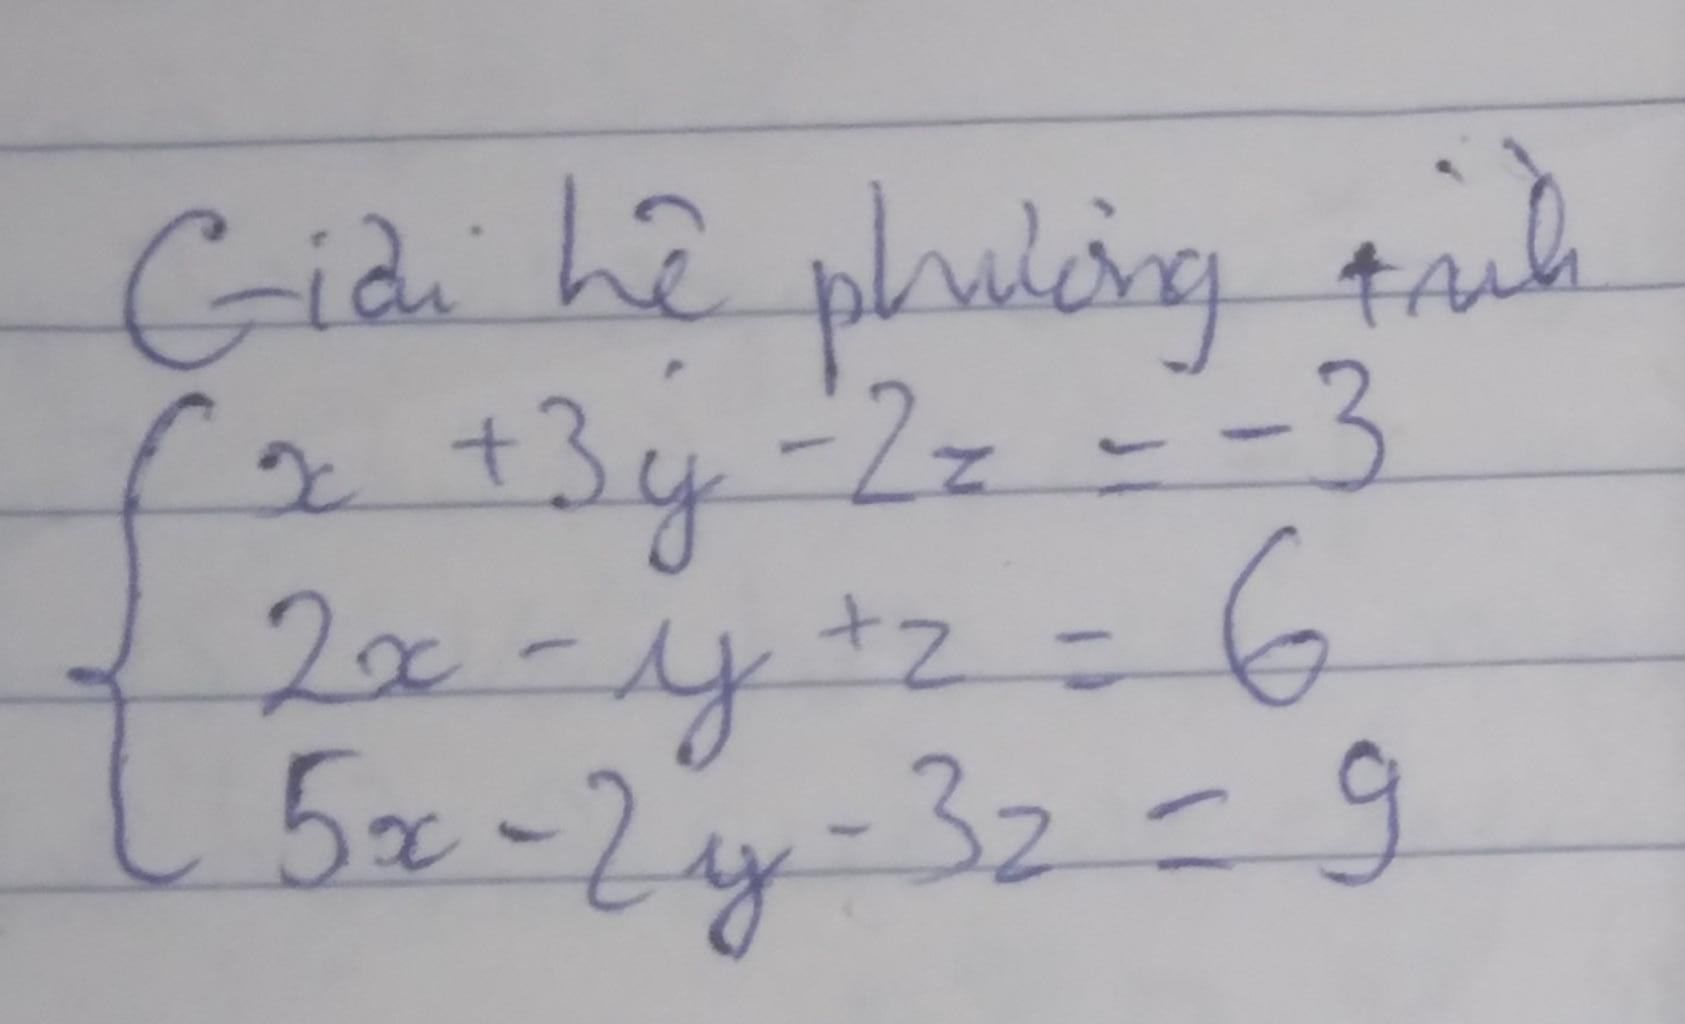 Giải hệ phương trình
x + 3y - 2z = -3
2x - y + z = 6
5x - 2y - 3z = 9